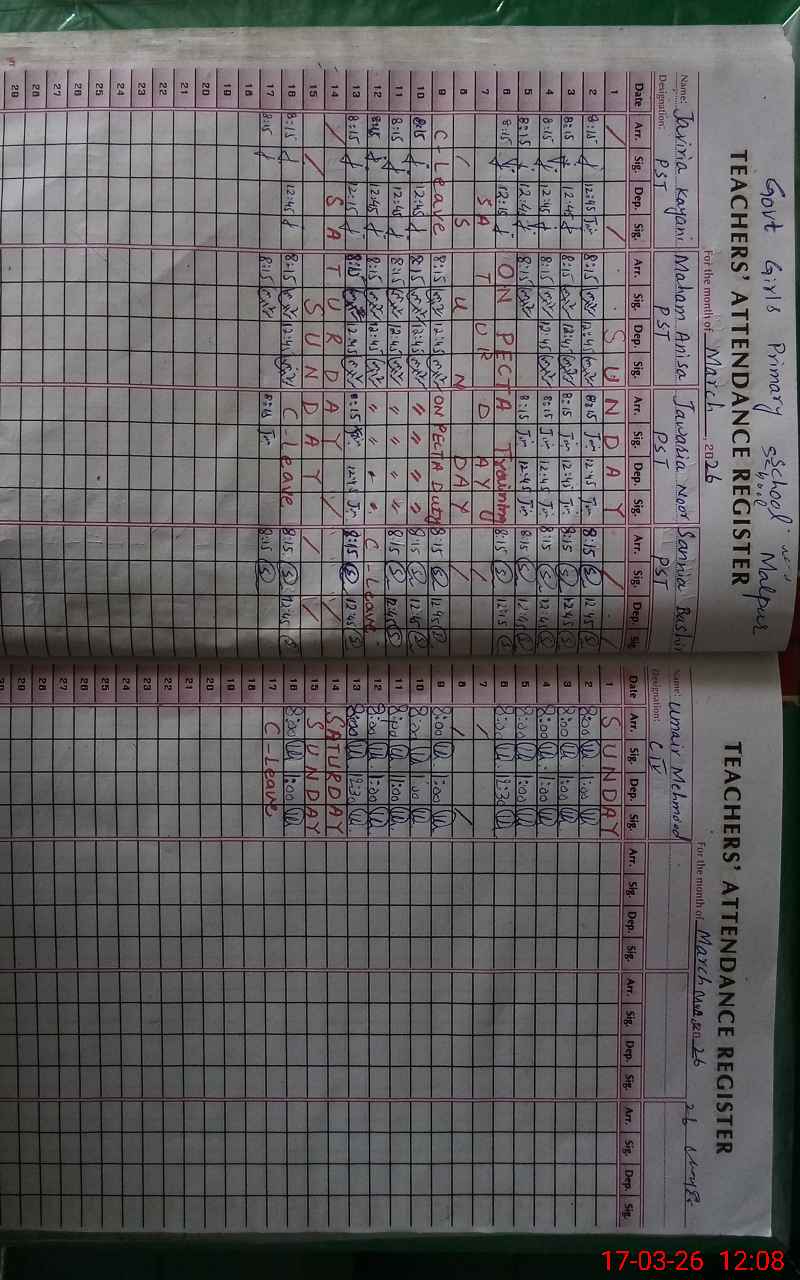 Govt Girls Primary School Malpur
TEACHERS' ATTENDANCE REGISTER
For the month of March, 2026
Name: Javiria Kayani Maham Anisa Jawaria Noor Sannia Bashir
Designation: PST PST PST PST
Date Arr. Sig. Dep. Sig. Arr. Sig. Dep. Sig. Arr. Sig. Dep. Sig. Arr. Sig. Dep. Sig.
1 SUNDAY
2 8:15 12:45 8:15 12:45 8:15 12:45 8:15 12:45
3 8:15 12:45 8:15 12:45 8:15 12:45 8:15 12:45
4 8:15 12:45 8:15 12:45 8:15 12:45 8:15 12:45
5 8:15 12:45 8:15 8:15 12:45 8:15 12:45
6 8:15 12:15 ON PECTA Training 8:15 12:15
7 SATURDAY
8 SUNDAY
9 C-Leave 8:15 12:45 ON PECTA Duty 8:15 12:45
10 8:15 12:45 8:15 12:45 " " " " 8:15 12:45
11 8:15 12:45 8:15 12:45 " " " " 8:15 12:45
12 8:15 12:45 8:15 12:45 " " " " C-Leave
13 8:15 12:15 8:15 12:45 8:15 12:45 8:15 12:45
14 SATURDAY
15 SUNDAY
16 8:15 12:45 8:15 12:45 C-Leave 8:15 12:45
17 8:15 8:15 8:15 8:15
18
19
20
21
22
23
24
25
26
27
28
29
TEACHERS' ATTENDANCE REGISTER
For the month of March 2026
Name: Umair Mehmood
Designation:
Date Arr. Sig. Dep. Sig. Arr. Sig. Dep. Sig. Arr. Sig. Dep. Sig. Arr. Sig. Dep. Sig.
1 SUNDAY
2 8:00 1:00
3 8:00 1:00
4 8:00 1:00
5 8:00 1:00
6 8:00 12:30
7
8
9 8:00 1:00
10 8:00 1:00
11 8:00 1:00
12 8:00 1:00
13 8:00 12:30
14 SATURDAY
15 SUNDAY
16 8:00 1:00
17 C-Leave
18
19
20
21
22
23
24
25
26
27
28
17-03-26 12:08